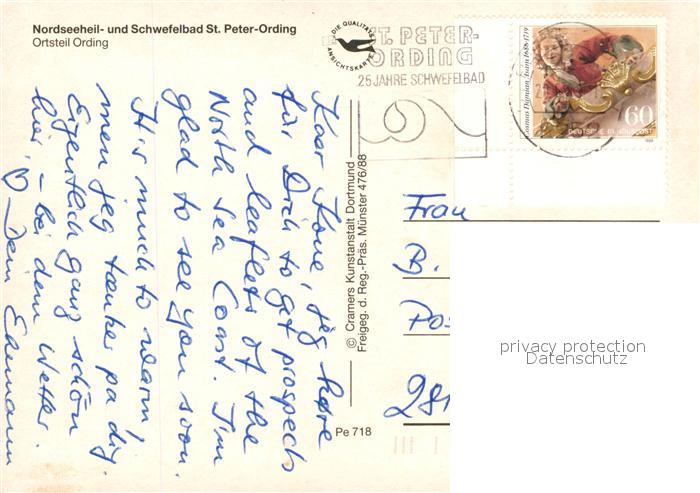 Nordseeheil- und Schwefelbad St. Peter-Ording
Ortsteil Ording
DIE QUALITÄTS
ANSICHTSKARTE
ST. PETER-
ORDING
25 JAHRE SCHWEFELBAD
Cosmas Damian Asam 1686-1739
60
DEUTSCHE BUNDESPOST
Kaer Kone, jeg høre
für Dich to get prospects
and leaflets of the
North Sea Coast. I'm
glad to see you soon.
It's much to warm,
men jeg tænker på dig.
Eigentlich ganz schön
hier, – bei dem Wetter.
Dein Ehemann
© Cramers Kunstanstalt Dortmund
Freigeg. d. Reg.-Präs. Münster 476/88
Pe 718
Frau
B.
Pos
281
privacy protection
Datenschutz